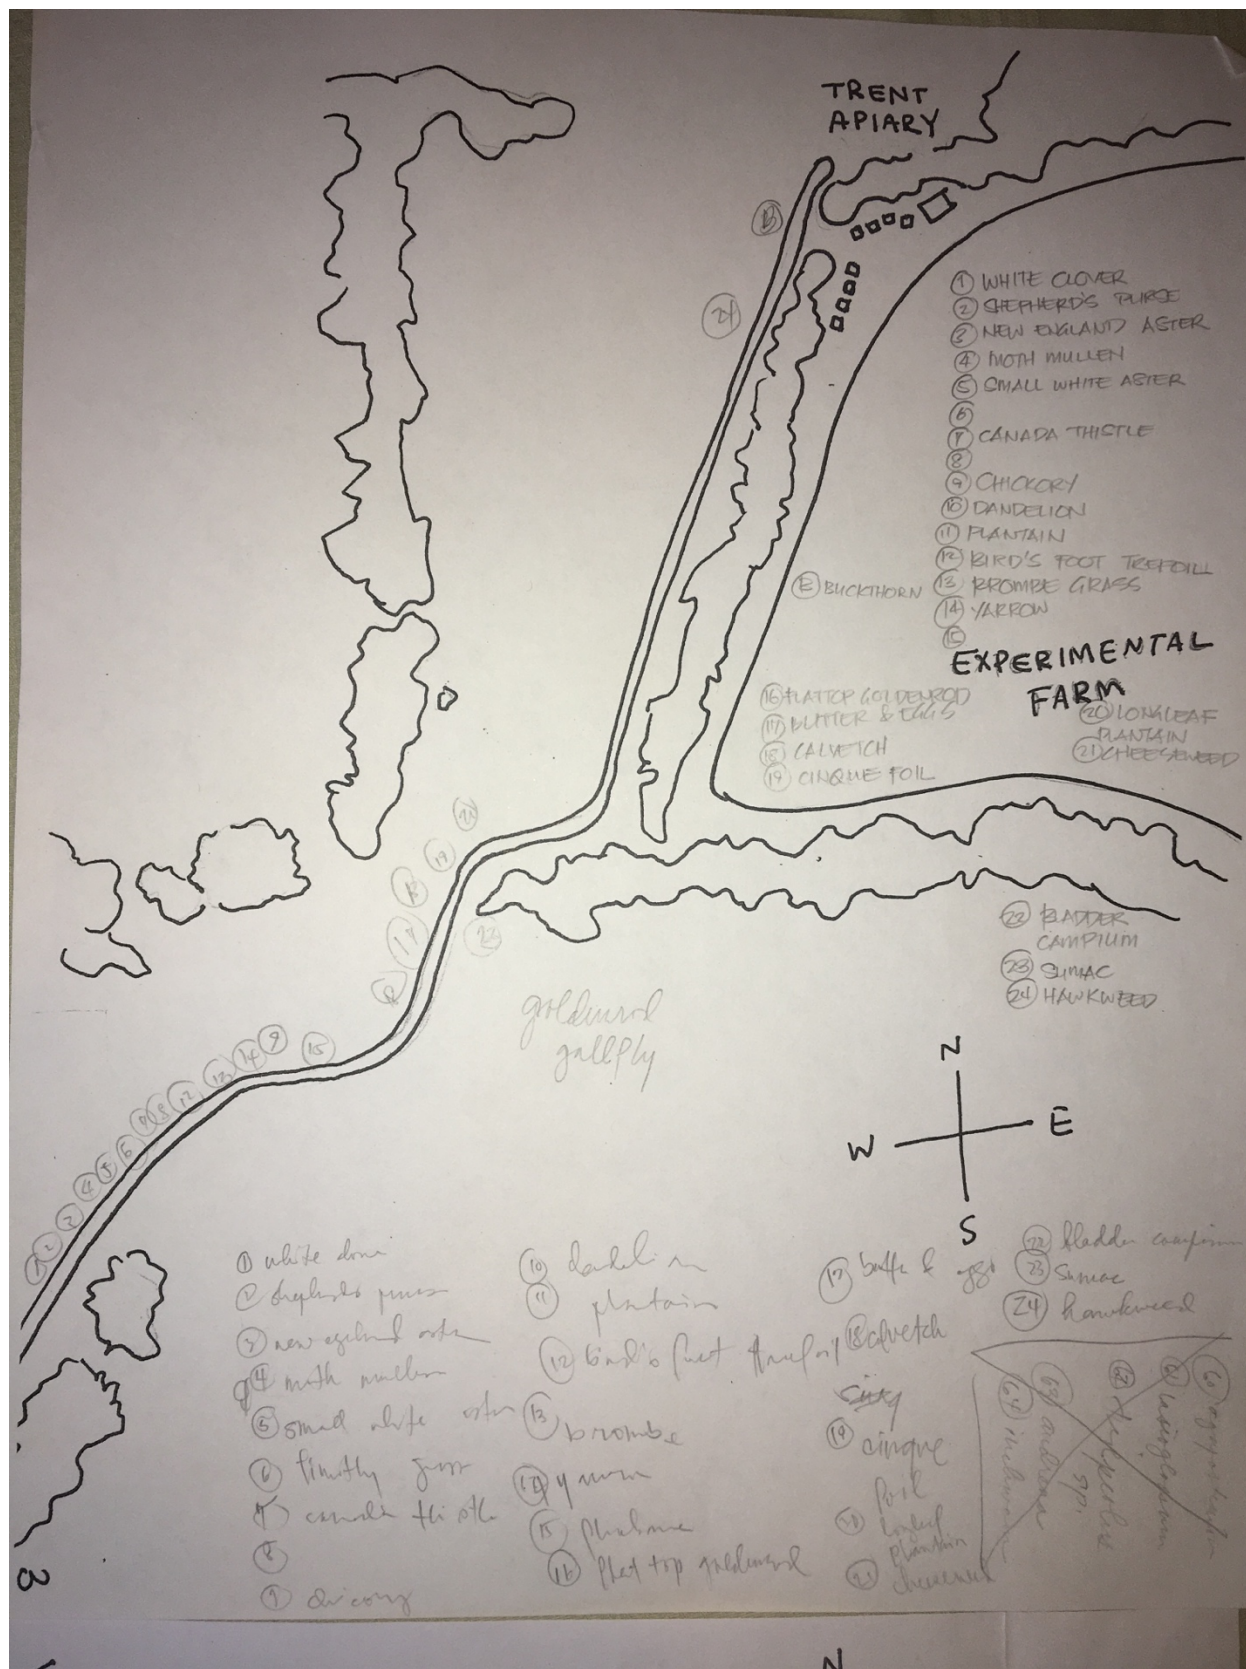 TRENT
APIARY
B
24
① WHITE CLOVER
② SHEPHERD'S PURSE
③ NEW ENGLAND ASTER
④ MOTH MULLEN
⑤ SMALL WHITE ASTER
⑥
⑦ CANADA THISTLE
⑧
⑨ CHICKORY
⑩ DANDELION
⑪ PLANTAIN
⑫ BIRD'S FOOT TREFOILL
B BUCKTHORN
⑬ BROMBE GRASS
⑭ YARROW
⑮
EXPERIMENTAL
FARM
⑯ FLATTOP GOLDENROD
⑰ BUTTER & EGGS
⑱ CALVETCH
⑲ CINQUE FOIL
⑳ LONGLEAF
PLANTAIN
㉑ CHEESEWEED
19
18
17
23
㉒ BLADDER
CAMPIUM
㉓ SUMAC
㉔ HAWKWEED
goldenrod
gallfly
15
9
14
13
12
5
4
3
2
1
N
W E
S
① white
② shepherds purse
③ new england aster
④ moth mullen
⑤ small white aster
⑥ timothy grass
⑦ canada thistle
⑧
⑨ chicory
⑩ dandelion
⑪ plantain
⑫ bird's foot trefoil
⑬ brombe
⑭ yarrow
⑮
⑯ flat top goldenrod
⑰ butter & eggs
⑱ calvetch
⑲ cinque
foil
⑳ longleaf
plantain
㉑ cheeseweed
㉒ bladder campium
㉓ sumac
㉔ hawkweed
60
61
62
sp.
63
64
3
N